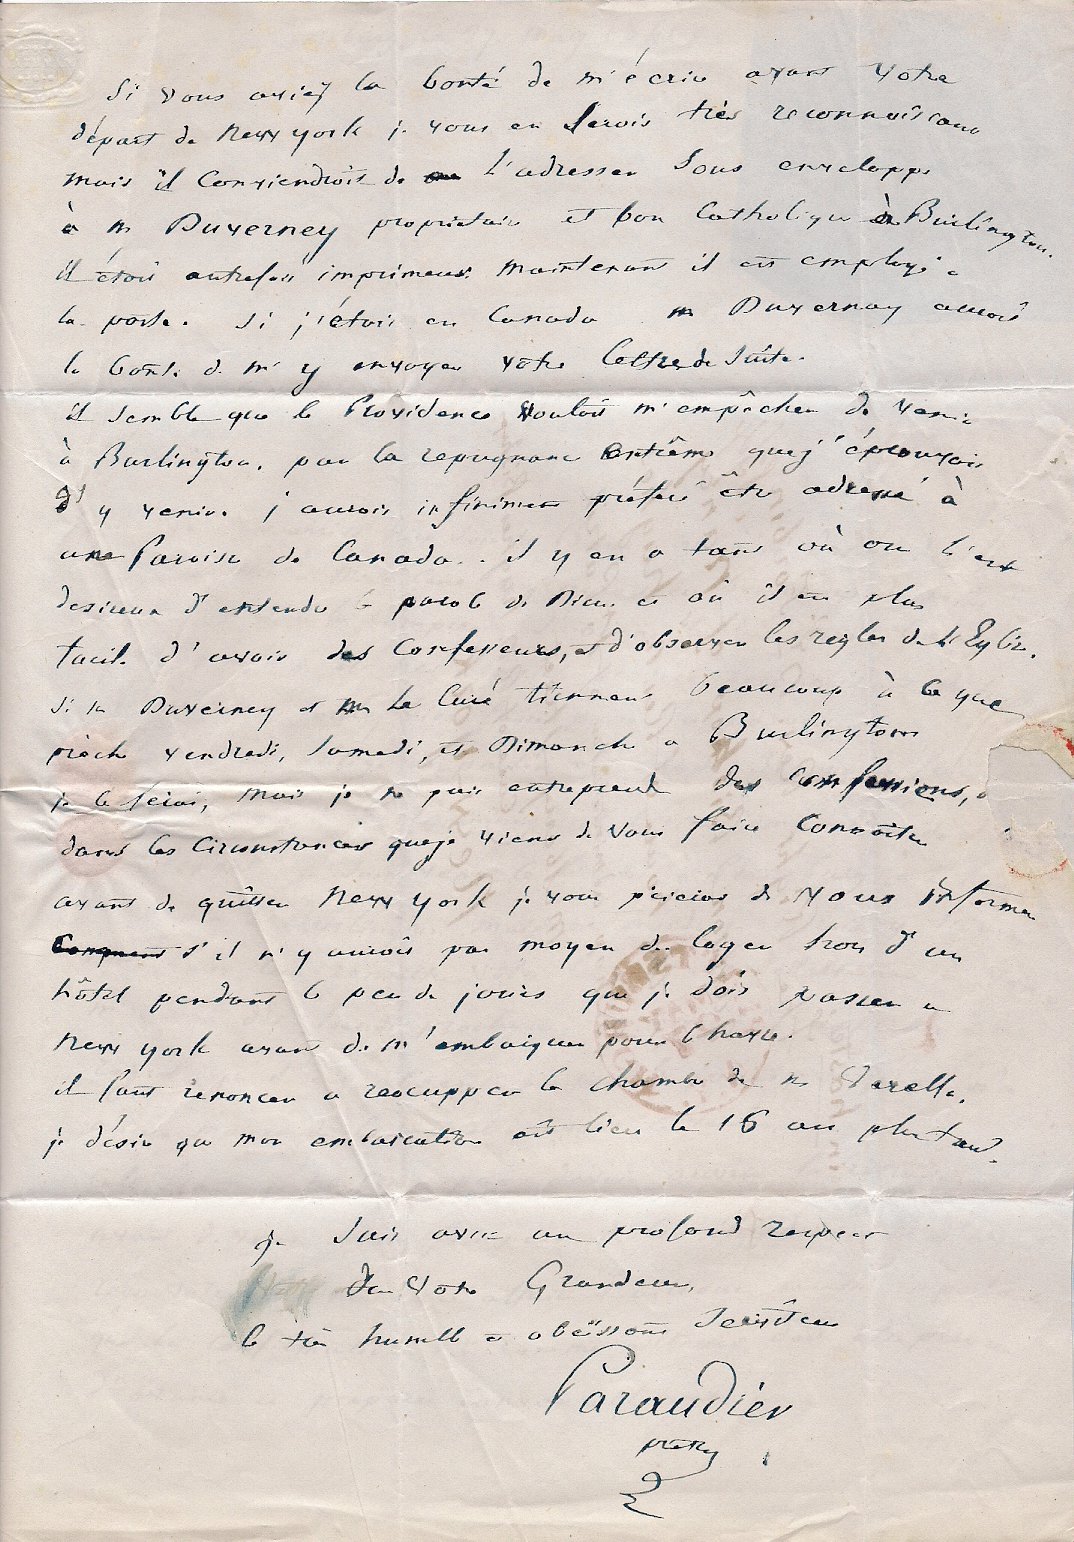 Si vous aviez la bonté de m'écrire avant votre
départ de New york je vous en serois très reconnoissant
mais il conviendroit de l'adresser sous enveloppe
à m Duverney proprietaire et bon Catholique à Burlington.
il étoit autrefois imprimeur. maintenant il est employé a
la poste. Si j'étois en Canada m Duvernay auroit
la bonté de m'y envoyer votre lettre de suite.
il semble que la Providence vouloit m'empêcher de venir
à Burlington. par la repugnance extrême que j'éprouvois
d'y venir. j'aurois infiniment préferé être adressé à
une Paroisse de Canada. il y en a tant où on l'est
desireux d'entendre la parole de Dieu et où il est plus
facile d'avoir des Confesseurs, et d'observer les regles de l'Eglise.
Si m Duverney et m le Curé tiennent beaucoup à ce que
prêche vendredi, samedi, et Dimanche a Burlington
je le ferai, mais je ne puis entreprendre des confessions,
dans les Circonstances que je viens de vous faire Connoître
avant de quitter New York je vous prierois de vous informer
s'il n'y auroit pas moyen de loger hors d'un
hôtel pendant le peu de jours que je dois passer a
New york avant de m'embarquer pour le havre.
il faut renoncer a reoccupper la chambre de m Varella.
je désire que mon embarcation ait lieu le 16 au plus tard.
je suis avec un profond respect
De Votre Grandeur,
le très humble et obéissant Serviteur
Paraudier
prêtre